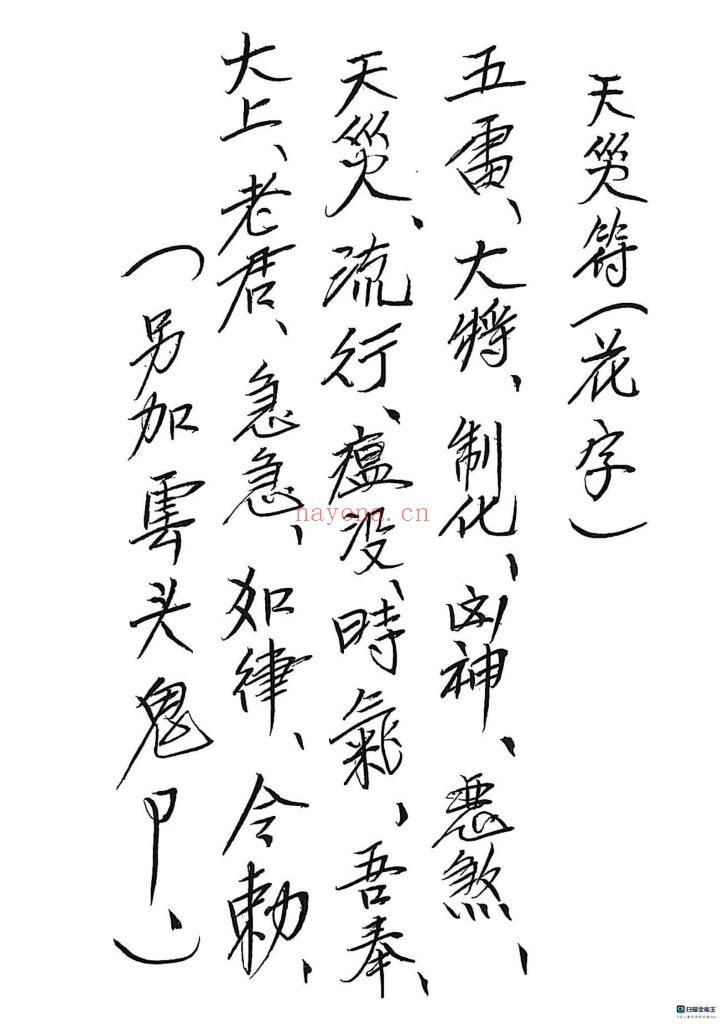 天災符(花字)
五雷、大将、制化、凶神、惡煞、
天災、流行、瘟没、時氣、吾奉、
大上、老君、急急、如律、令勅、
(另加雲头鬼甲、)
hayona.cn
扫描全能王